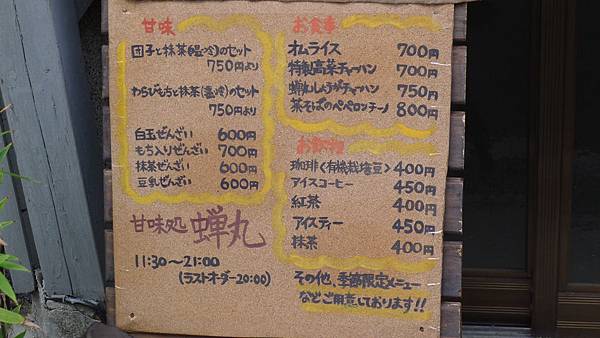 甘味
団子と抹茶(温・冷)のセット
750円より
わらびもちと抹茶(温・冷)のセット
750円より
白玉ぜんざい 600円
もち入りぜんざい 700円
抹茶ぜんざい 600円
豆乳ぜんざい 600円
甘味処 蝉丸
11:30~21:00
(ラストオーダー20:00)
お食事
オムライス 700円
特製高菜チャーハン 700円
蝉丸しょうがチャーハン 750円
茶そばのペペロンチーノ 800円
お飲物
珈琲<有機栽培豆> 400円
アイスコーヒー 450円
紅茶 400円
アイスティー 450円
抹茶 400円
その他、季節限定メニュー
などご用意しております!!